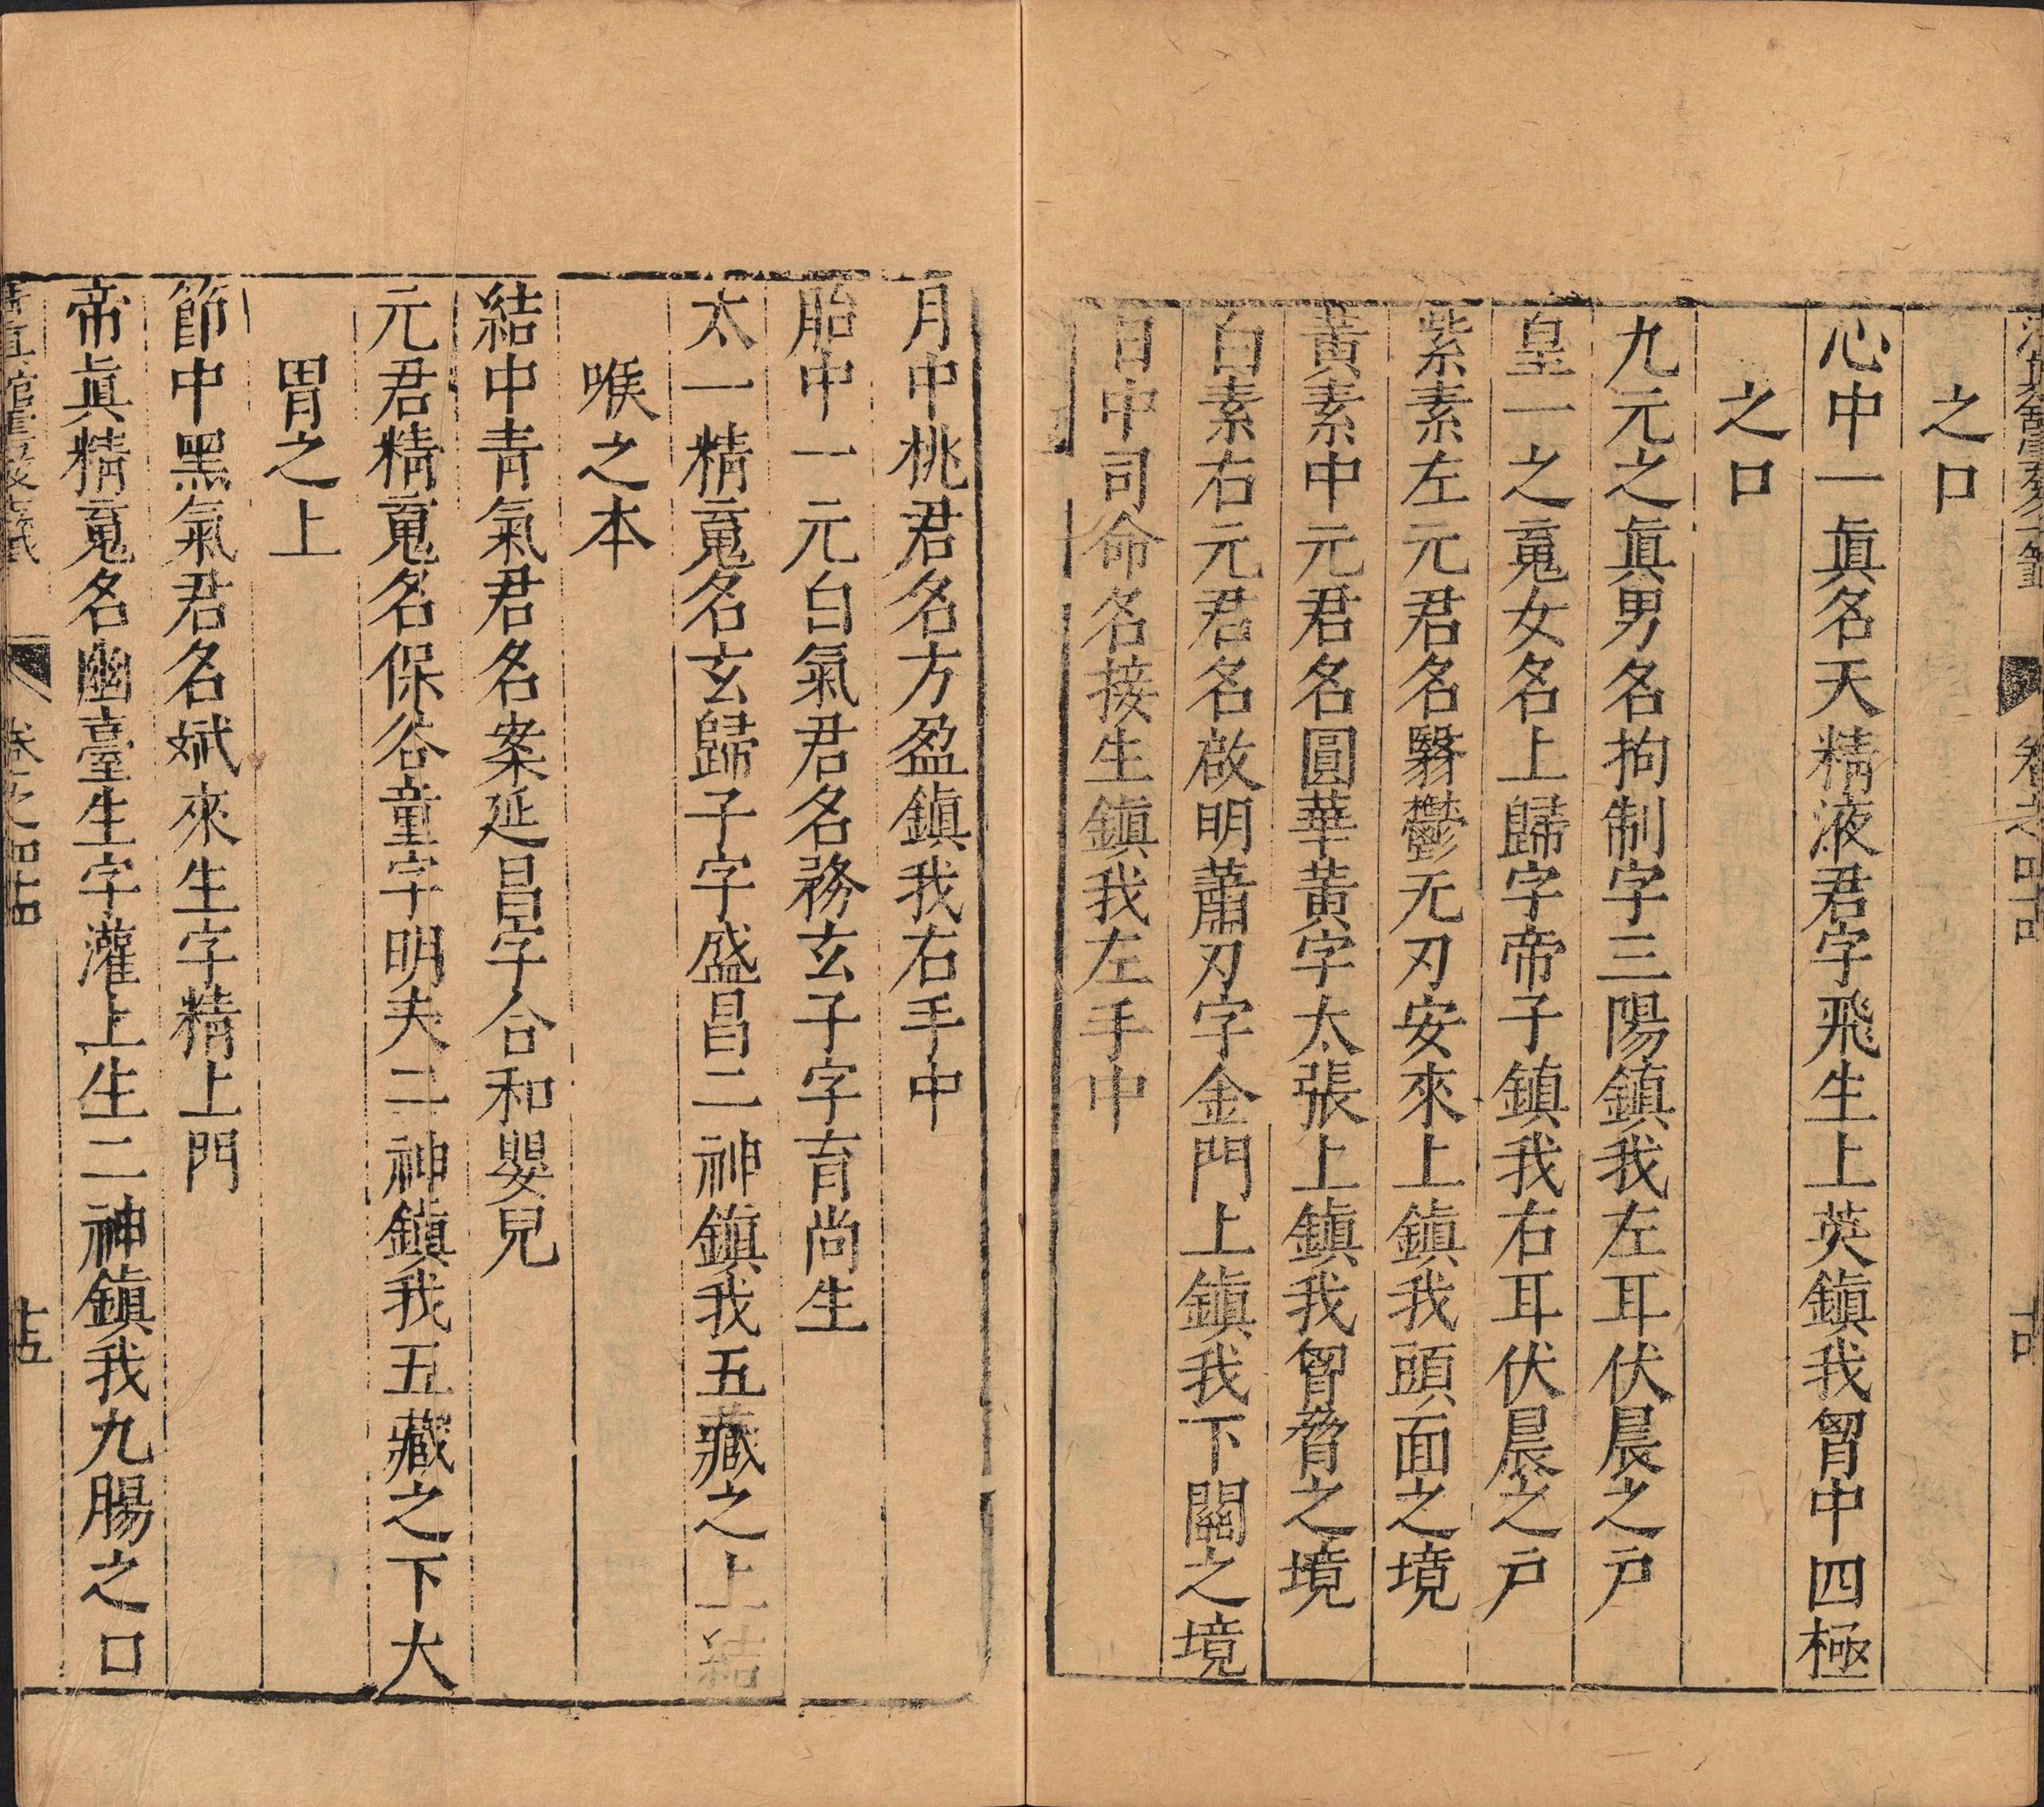 之口
心中一眞名天精液君字飛生上英鎮我胷中四極
之口
九元之眞男名拘制字三陽鎮我左耳伏晨之戶
皇一之䰟女名上歸字帝子鎮我右耳伏晨之戶
紫素左元君名翳鬱无刃安來上鎮我頭面之境
黃素中元君名圓華黃字太張上鎮我胷脅之境
白素右元君名啟明蕭刃字金門上鎮我下關之境
日中司命名接生鎮我左手中
月中桃君名方盈鎮我右手中
胎中一元白氣君名務玄子字育尚生
太一精䰟名玄歸子字盛昌二神鎮我五藏之上結
喉之本
結中青氣君名案延昌字合和嬰兒
元君精䰟名保谷童字明夫二神鎮我五藏之下大
胃之上
節中黑氣君名斌來生字精上門
帝眞精䰟名幽臺生字灌上生二神鎮我九腸之口
十五